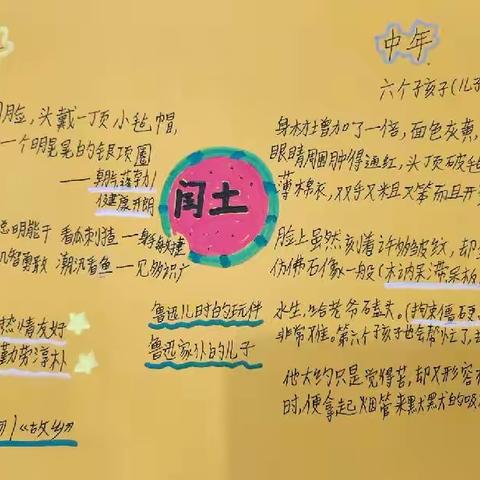 中年
六个孩子(儿子
脸,头戴一顶小毡帽,
一个明晃晃的银项圈
——朝气蓬勃
健康开朗
闰土
聪明能干 看瓜刺猹——身手敏捷
机智勇敢 潮汛看鱼——见多识广
热情友好
勤劳淳朴
鲁迅儿时的玩伴
鲁迅家仆的儿子
《故乡》
身材增加了一倍,面色灰黄,
眼睛周围肿得通红,头顶破毡
薄棉衣,双手又粗又笨而且开
脸上虽然刻着许多皱纹,却
仿佛石像一般(木讷呆滞呆板
水生,给老爷磕头。(拘束
非常难。第六个孩子也会帮忙了,却
他大约只是觉得苦,却又形容
时,便拿起烟管来默默的吸